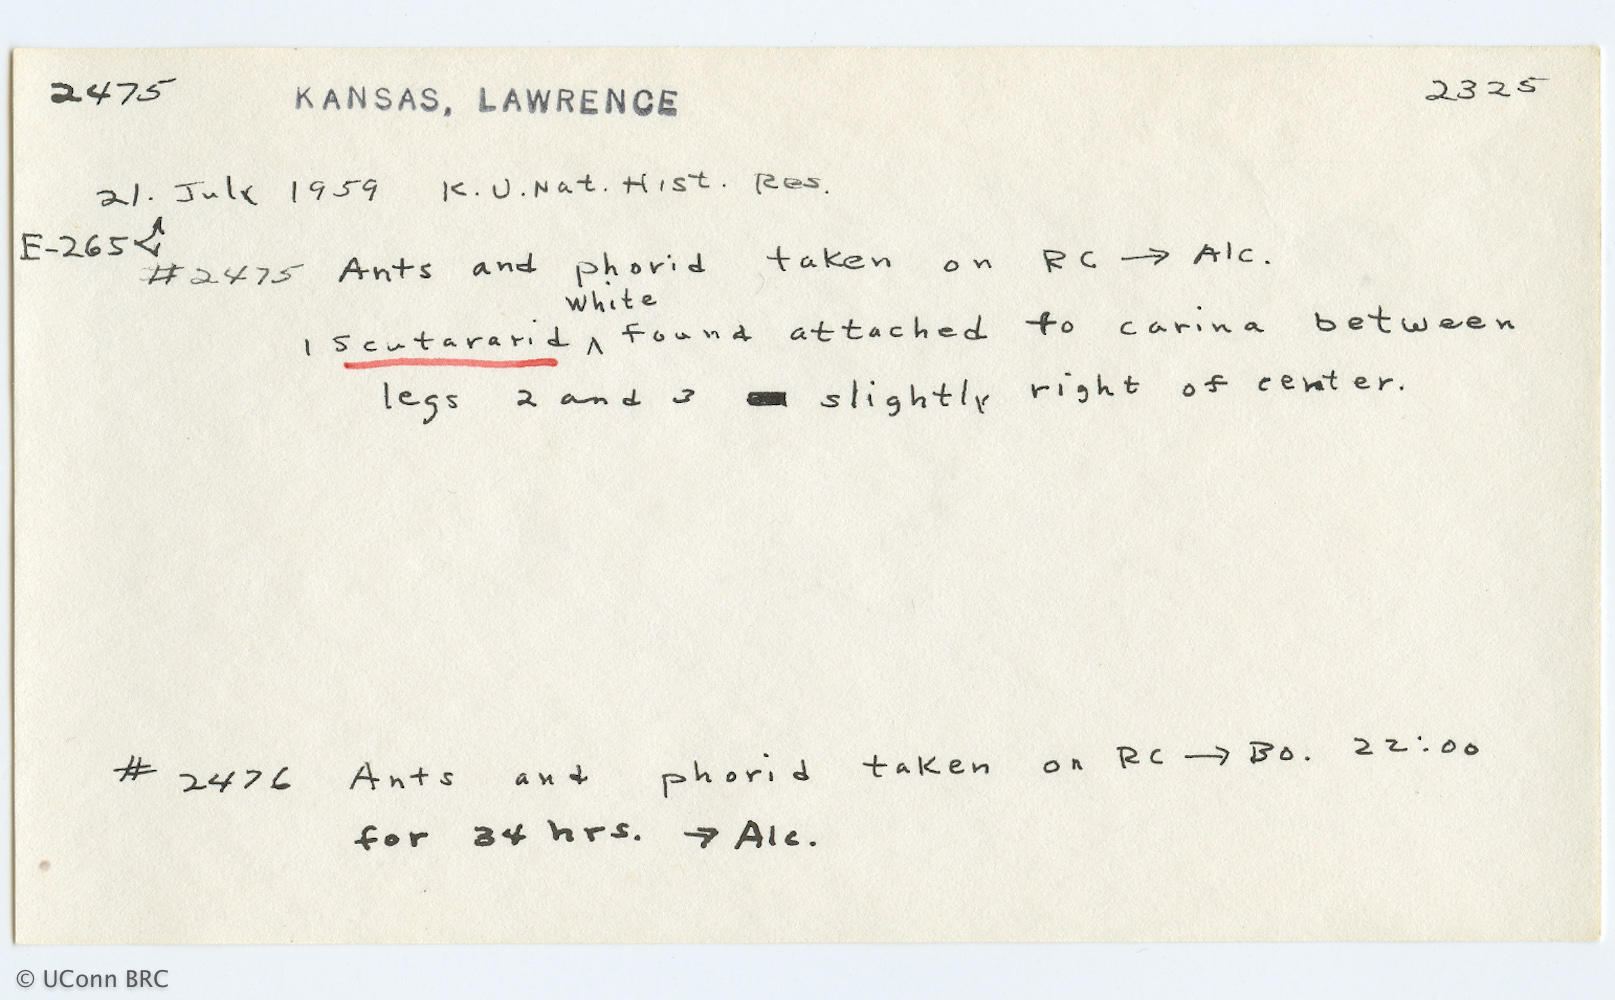 2475 KANSAS, LAWRENCE 2325
21. July 1959 K.U.Nat.Hist. Res.
E-265
#2475 Ants and phorid taken on RC → Alc.
white
1 Scutararid ^ found attached to carina between
legs 2 and 3 slightly right of center.
# 2476 Ants and phorid taken on RC → Bo. 22:00
for 34 hrs. → Alc.
© UConn BRC